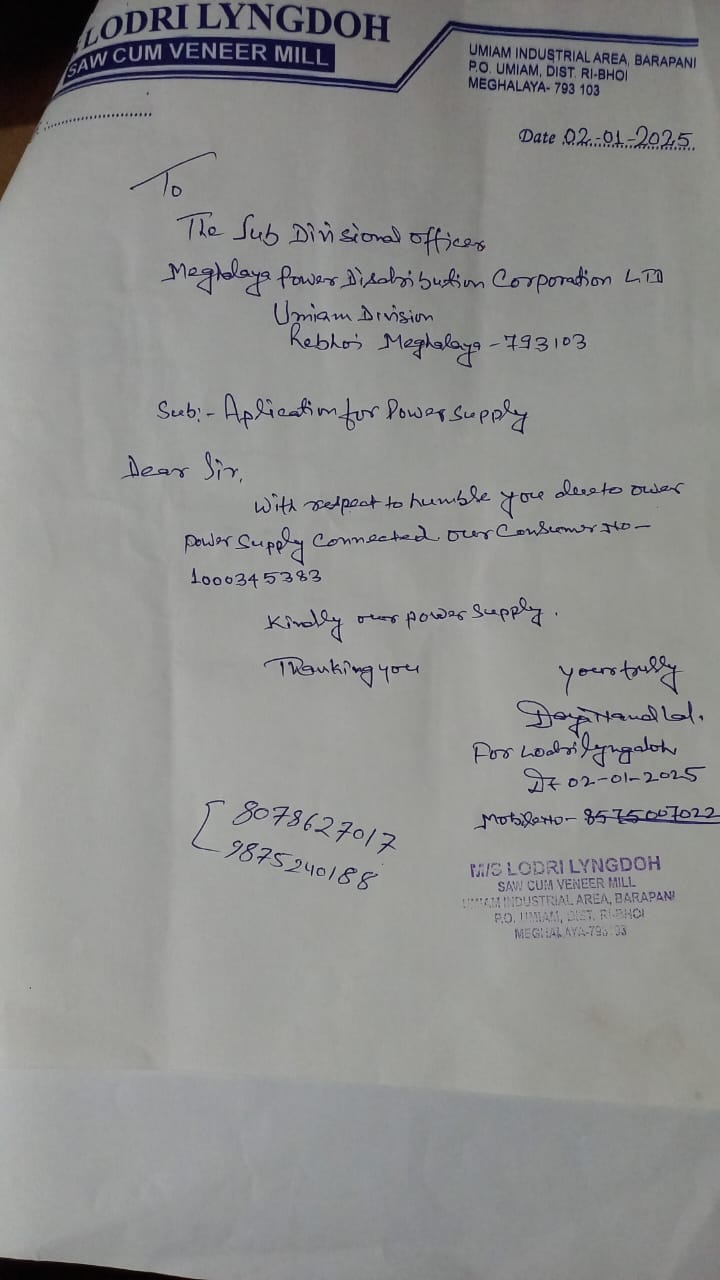 LODRI LYNGDOH
SAW CUM VENEER MILL
UMIAM INDUSTRIAL AREA, BARAPANI
P.O. UMIAM, DIST. RI-BHOI
MEGHALAYA- 793 103
Date 02-01-2025
To
The Sub Divisional officer
Meghalaya Power Disdribution Corporation LTD
Umiam Division
Rebhoi Meghalaya - 793103
Sub:- Aplication for Power Supply
Dear Sir,
With respect to humble you due to ower
power Supply Connected our Consumer No -
1000345383
Kindly our power Supply.
Thanking you
yours fully
For Lodri lyngdoh
Dt 02-01-2025
Mobile No - 8575007022
8078627017
9875240188
M/S LODRI LYNGDOH
SAW CUM VENEER MILL
UMIAM INDUSTRIAL AREA, BARAPANI
P.O. UMIAM, DIST. RI-BHOI
MEGHALAYA-793103